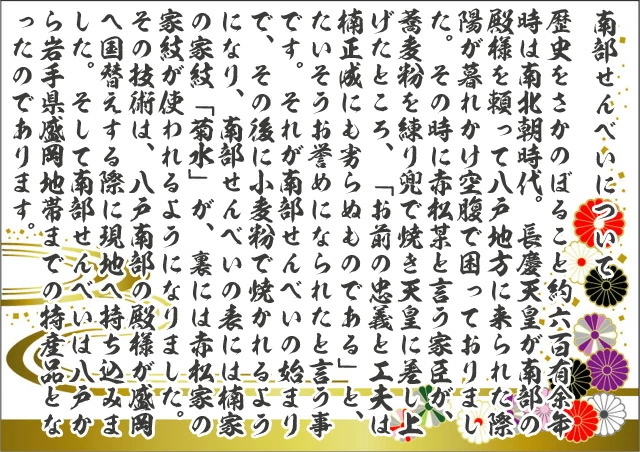 南部せんべいについて
歴史をさかのぼること約六百有余年
時は南北朝時代。長慶天皇が南部の
殿様を頼って八戸地方に来られた際
陽が暮れかけ空腹で困っておりまし
た。その時に赤松某と言う家臣が
蕎麦粉を練り兜で焼き天皇に差し上
げたところ、「お前の忠義と工夫は
楠正成にも劣らぬものである」と、
たいそうお誉めになられたと言う事
です。それが南部せんべいの始まり
で、その後に小麦粉で焼かれるよう
になり、南部せんべいの表には楠家
の家紋「菊水」が、裏には赤松家の
家紋が使われるようになりました。
その技術は、八戸南部の殿様が盛岡
へ国替えする際に現地へ持ち込みま
した。そして南部せんべいは八戸か
ら岩手県盛岡地帯までの特産品とな
ったのであります。